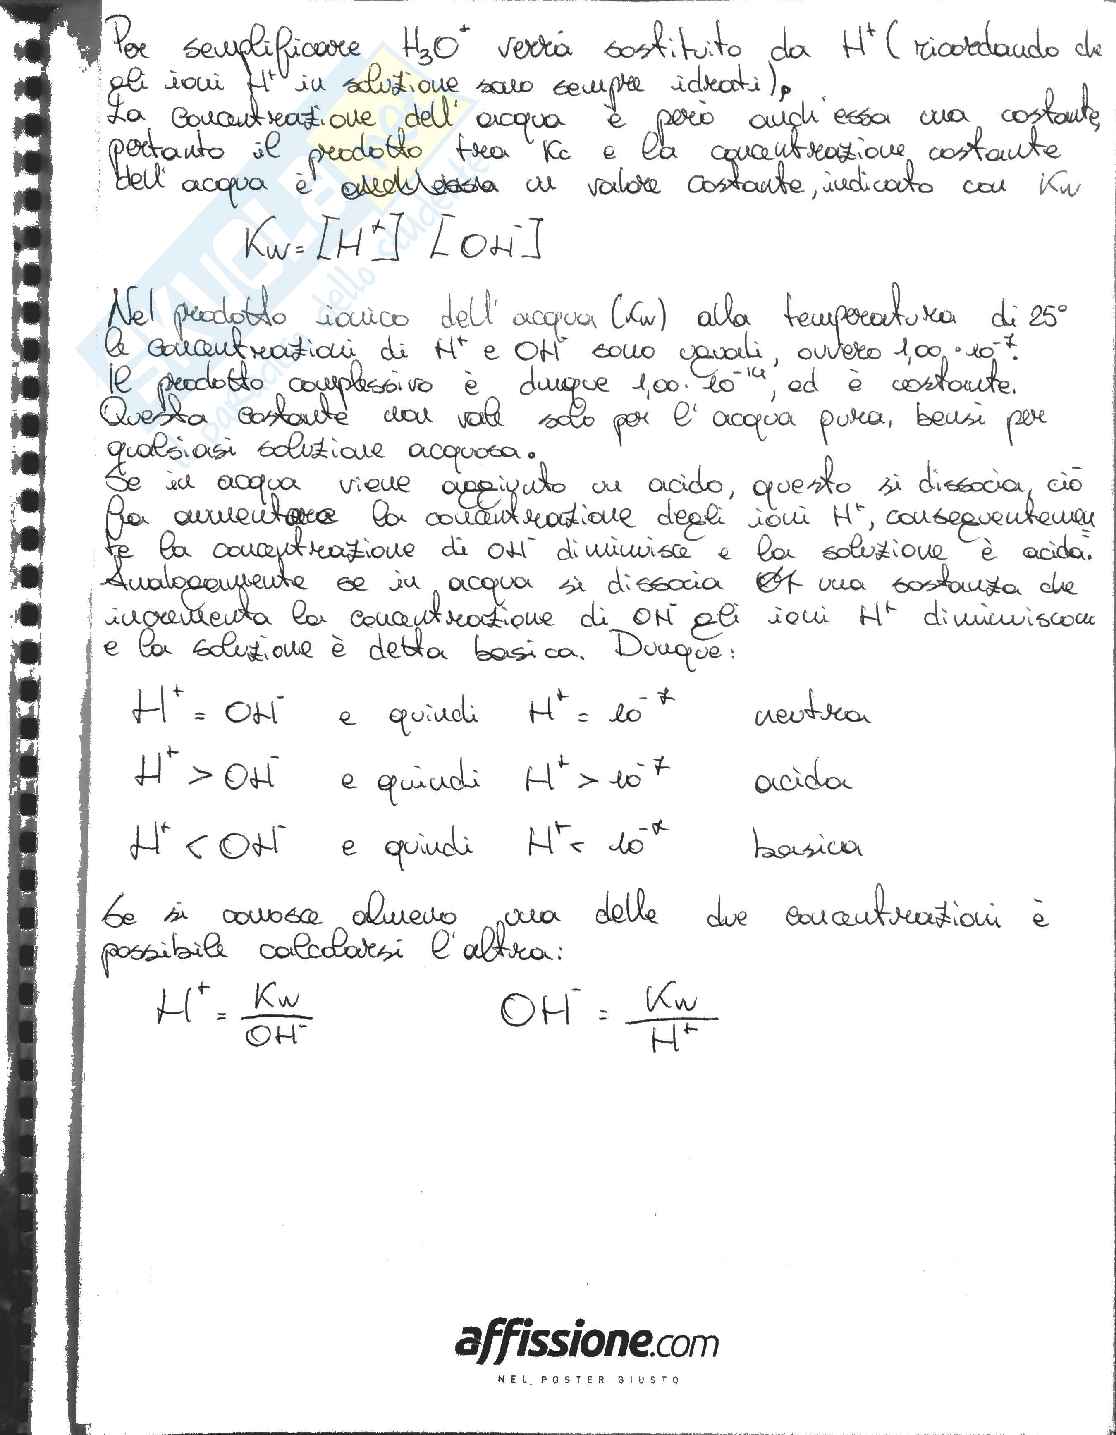 Per semplificare H₃O⁺ verrà sostituito da H⁺ (ricordando che
gli ioni H⁺ in soluzione sono sempre idratati).
La concentrazione dell'acqua è però anch'essa una costante,
pertanto il prodotto tra Kc e la concentrazione costante
dell'acqua è un valore costante, indicato con Kw
Kw = [H⁺] [OH⁻]
Nel prodotto ionico dell'acqua (Kw) alla temperatura di 25°
le concentrazioni di H⁺ e OH⁻ sono uguali, ovvero 1,00·10⁻⁷.
Il prodotto complessivo è dunque 1,00·10⁻¹⁴, ed è costante.
Questa costante non vale solo per l'acqua pura, bensì per
qualsiasi soluzione acquosa.
Se in acqua viene aggiunto un acido, questo si dissocia, ciò
fa aumentare la concentrazione degli ioni H⁺, conseguentemen
te la concentrazione di OH⁻ diminuisce e la soluzione è acida.
Analogamente se in acqua si dissocia una sostanza che
incrementa la concentrazione di OH⁻ gli ioni H⁺ diminuiscono
e la soluzione è detta basica. Dunque:
H⁺ = OH⁻ e quindi H⁺ = 10⁻⁷ neutra
H⁺ > OH⁻ e quindi H⁺ > 10⁻⁷ acida
H⁺ < OH⁻ e quindi H⁺ < 10⁻⁷ basica
Se si conosce almeno una delle due concentrazioni è
possibile calcolarsi l'altra:
H⁺ = Kw/OH⁻ OH⁻ = Kw/H⁺
affissione.com
NEL POSTER GIUSTO